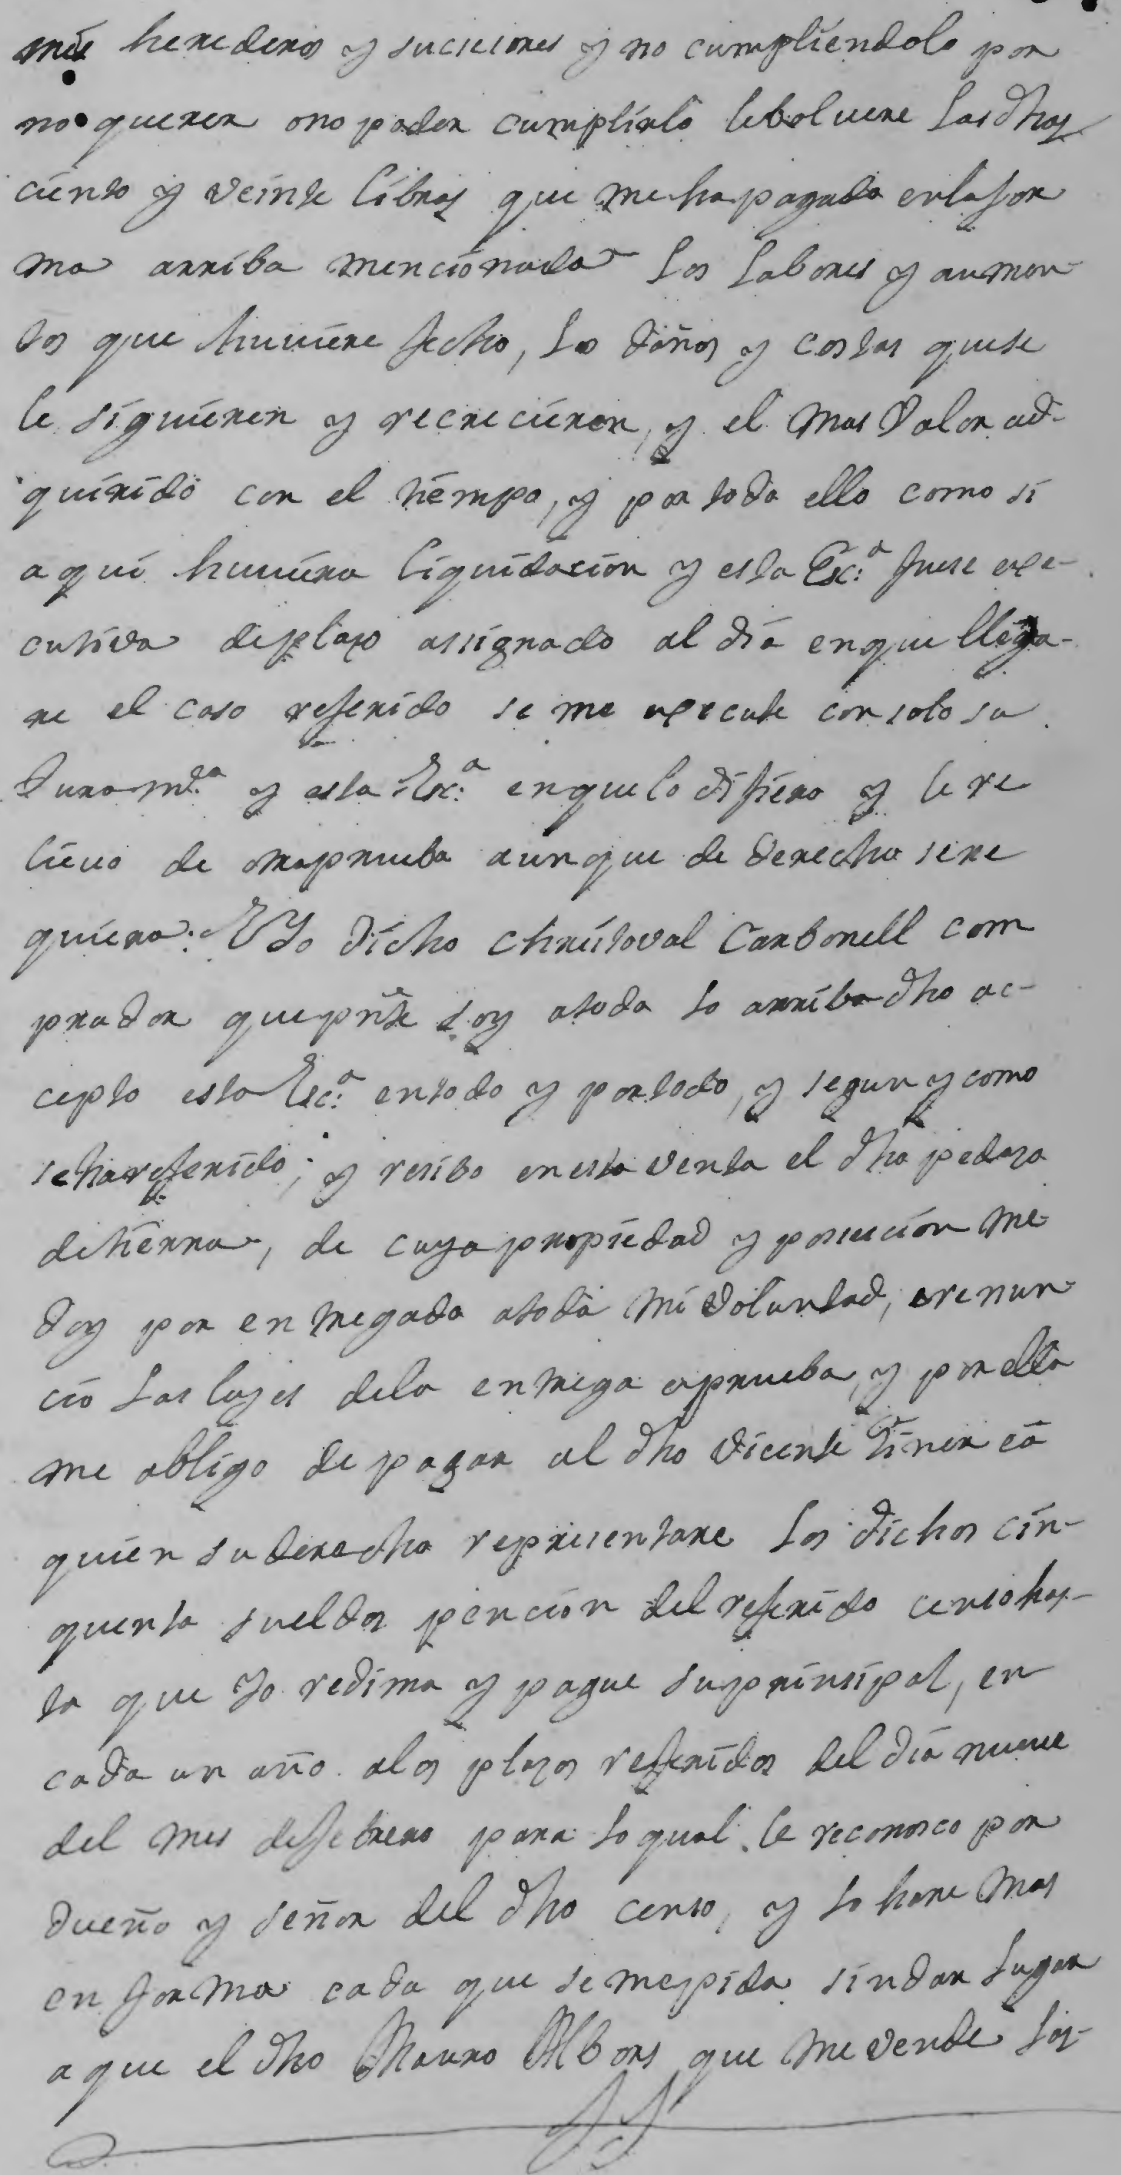 mis herederos y sucesores y no cumpliendolo por
no querer o no poder cumplirlo le bolvere las dhas
ciento y veinte libras que me ha pagado en la for
ma arriba mencionada los labores y aumen-
tos que huviere fecho, los daños y costas que se
le siguieren y recrecieren, y el mas valor ad-
quirido con el tiempo, y por todo ello como si
aqui huviera liquidacion y esta Esc.ª fuese exe-
cutiva de plazo assignado al dia en que llega-
re el caso referido se me execute con solo su
Juram.to y esta Esc.ª en que lo difiero y le re
lievo de otra prueba aunque de derecho se re
quiera: E Yo dicho Christoval Carbonell com
prador que pñte soy a todo lo arriba dho ac-
cepto esta Esc.ª en todo y por todo, y segun y como
se ha referido; y resibo en esta venta el dho pedaso
de tierra, de cuya propiedad y possecion me
doy por entregado a toda mi voluntad, renun-
cio las leyes dela entrega e prueba, y por ella
me obligo de pagar al dho Vicente Giner o a
quien su derecho representare los dichos cin-
quenta sueldos pencion del referido censo has-
ta que yo redima y pague su prinsipal, en
cada un año a los plazos referidos del dia nueve
del mes de febrero para lo qual le reconosco por
dueño y señor del dho censo, y lo hare mas
en forma cada que se me pida sin dar lugar
a que el dho Mauro Albors que me vende los-